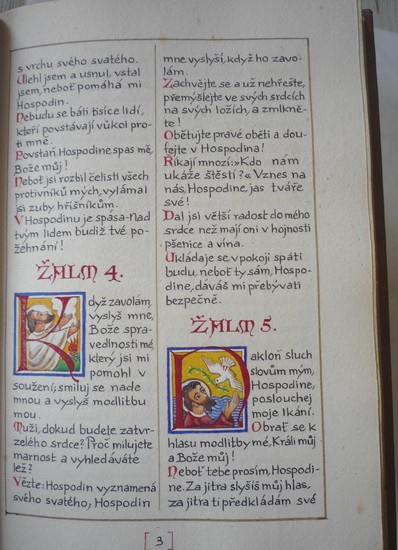 s vrchu svého svatého.
Ulehl jsem a usnul, vstal
jsem, neboť pomáhá mi
Hospodin.
Nebudu se báti tisíce lidí,
kteří povstávají vůkol pro-
ti mně.
Povstaň Hospodine spas mě,
Bože můj!
Neboť jsi rozbil čelisti všech
protivníků mých, vylámal
jsi zuby hříšníkům.
V Hospodinu je spása-Nad
tvým lidem budiž tvé po-
žehnání!
ŽALM 4.
Když zavolám,
vyslyš mne,
Bože spra-
vedlnosti mé
který jsi mi
pomohl v
soužení; smiluj se nade
mnou a vyslyš modlitbu
mou.
Muži, dokud budete zatvr-
zelého srdce? Proč milujete
marnost a vyhledáváte
lež?
Vězte: Hospodin vyznamená
svého svatého, Hospodin
mne vyslyší, když ho zavo-
lám.
Zachvějte se a už nehřešte,
přemýšlejte ve svých srdcích
na svých ložích, a zmlkně-
te!
Obětujte pravé oběti a dou-
fejte v Hospodina!
Říkají mnozí:»Kdo nám
ukáže štěstí?« Vznes na
nás, Hospodine, jas tváře
své!
Dal jsi větší radost do mého
srdce než mají oni v hojnosti
pšenice a vína.
Ukládaje se v pokoji spáti
budu, neboť ty sám, Hospo-
dine, dáváš mi přebývati
bezpečně.
ŽALM 5.
Nakloň sluch
slovům mým,
Hospodine,
poslouchej
moje lkání.
Obrať se k
hlasu modlitby mé, Králi můj
a Bože můj!
Neboť tebe prosím, Hospodi-
ne. Za jitra slyšíš můj hlas,
za jitra ti předkládám své
[ 3 ]